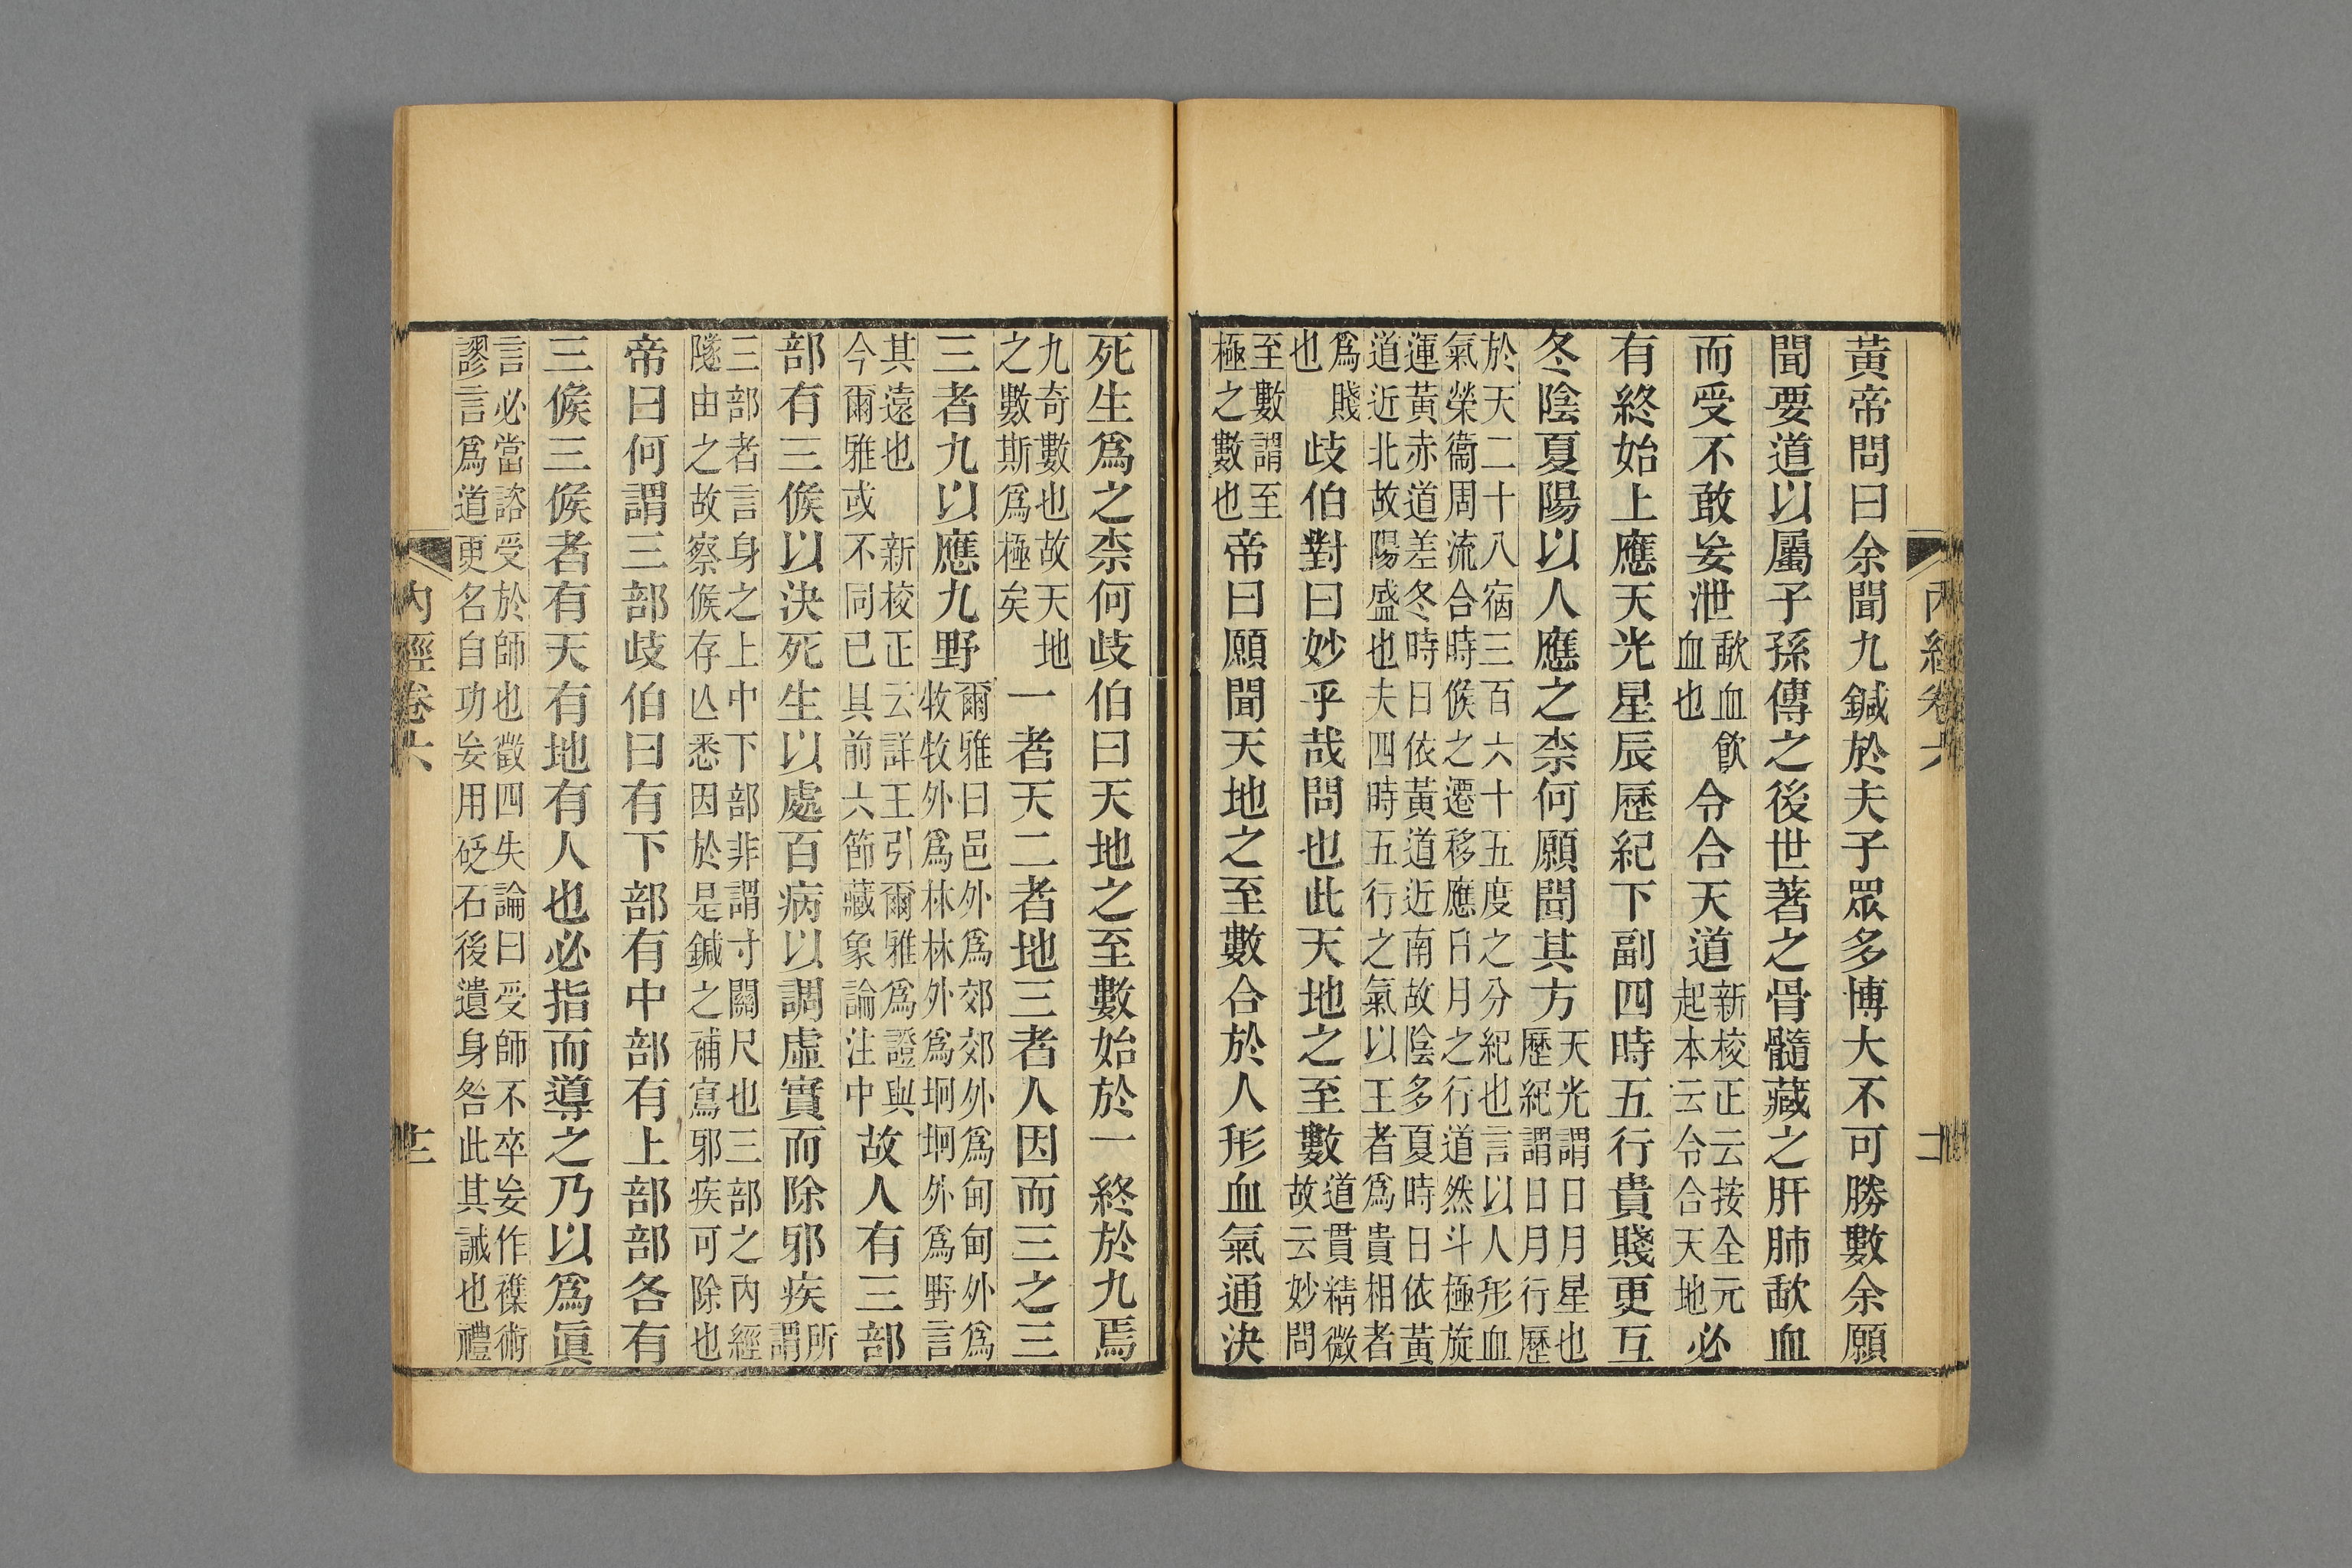 黃帝問曰余聞九鍼於夫子眾多博大不可勝數余願
聞要道以屬子孫傳之後世著之骨髓藏之肝肺歃血
而受不敢妄泄歃血飲血也令合天道新校正云按全元起本云令合天地必
有終始上應天光星辰歷紀下副四時五行貴賤更互
冬陰夏陽以人應之柰何願聞其方天光謂日月星也歷紀謂日月行歷
於天二十八宿三百六十五度之分紀也言以人形血氣榮衞周流合時候之遷移應日月之行道然斗極旋
運黃赤道差冬時日依黃道近南故陰多夏時日依黃道近北故陽盛也夫四時五行之氣以王者爲貴相者
爲賤也歧伯對曰妙乎哉問也此天地之至數道貫精微故云妙問
至數謂至極之數也帝曰願聞天地之至數合於人形血氣通決
死生爲之柰何歧伯曰天地之至數始於一終於九焉
九奇數也故天地之數斯爲極矣一者天二者地三者人因而三之三
三者九以應九野爾雅曰邑外爲郊郊外爲甸甸外爲牧牧外爲林林外爲坰坰外爲野言
其遠也新校正云詳王引爾雅爲證與今爾雅或不同已具前六節藏象論注中故人有三部
部有三候以決死生以處百病以調虛實而除邪疾所謂
三部者言身之上中下部非謂寸關尺也三部之內經隧由之故察候存亾悉因於是鍼之補寫邪疾可除也
帝曰何謂三部歧伯曰有下部有中部有上部部各有
三候三候者有天有地有人也必指而導之乃以爲眞
言必當諮受於師也徵四失論曰受師不卒妄作襍術謬言爲道更名自功妄用砭石後遺身咎此其誡也禮
內經卷六